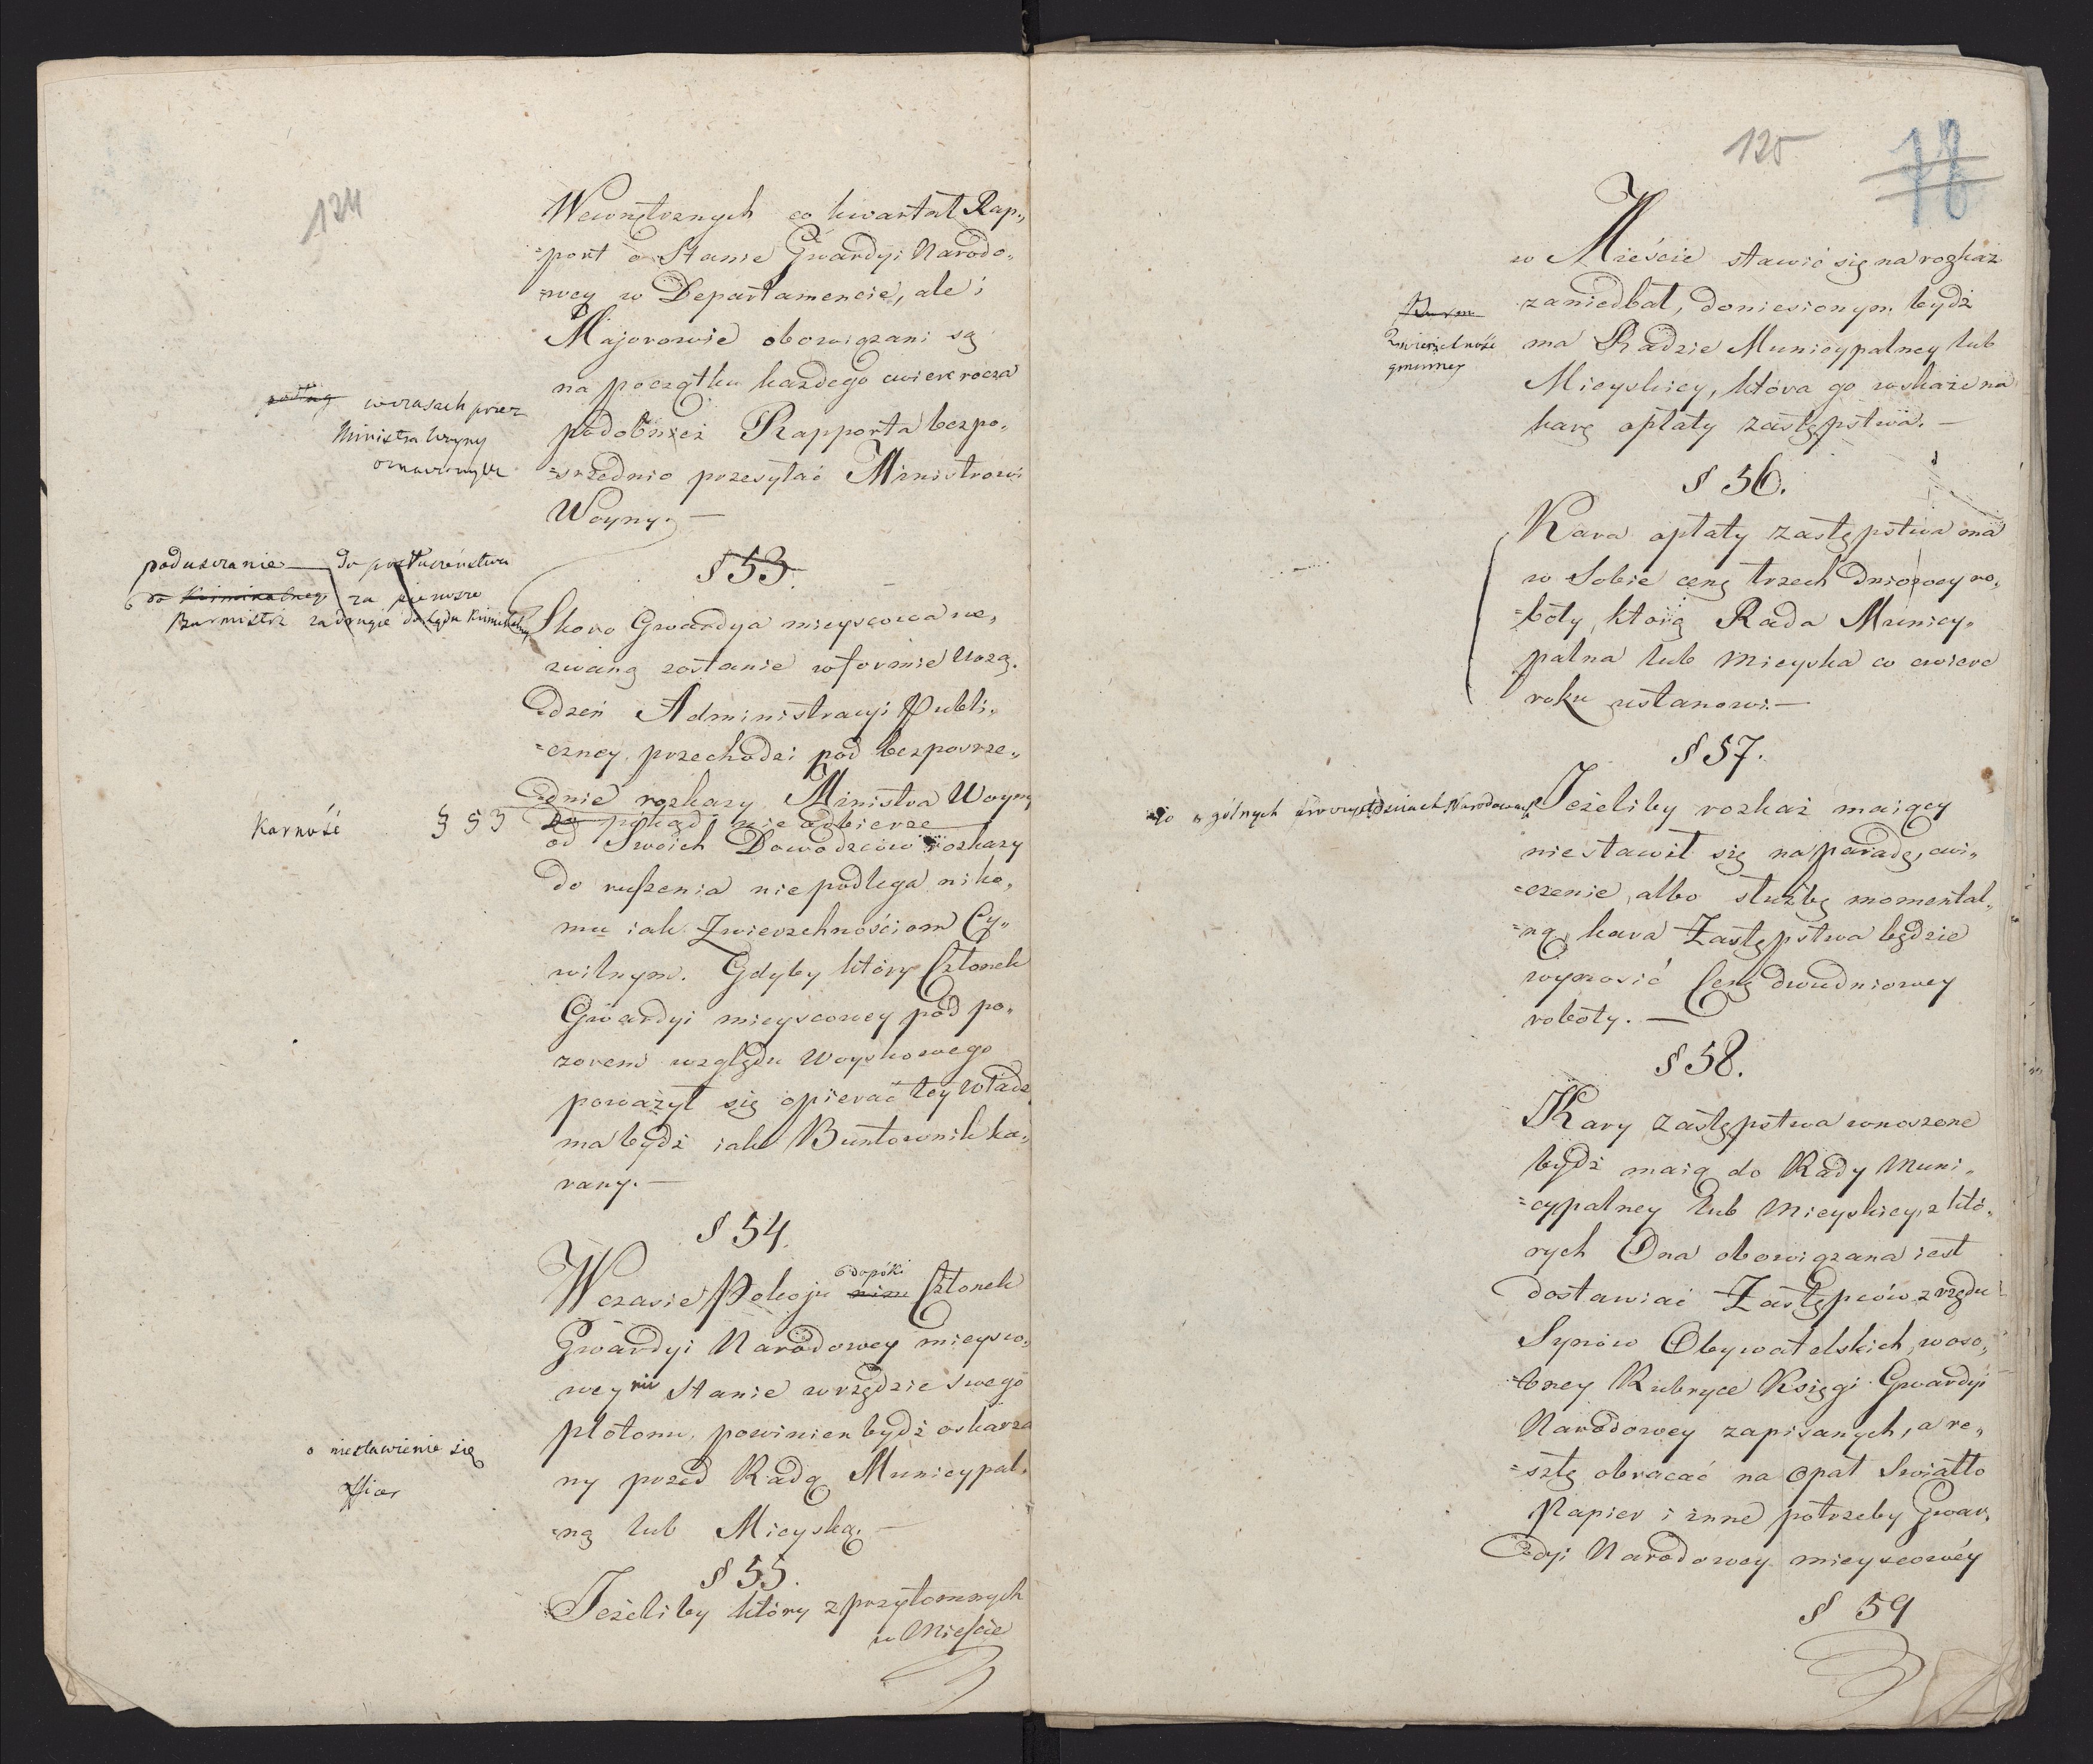 124
Wewnętrznych co kwartał Rap„
=port o Stanie Gwardyi Narodo„
=wey w Departamencie, ale i
Majorowie obowiązani są
na początku każdego cwierćrocza
podobnież Rapporta bezpo„
=srzednio przesyłać Ministrowi
Woyny. —
w czasach przez
Ministra Woyny
oznaczonych
§ 53.
poduszczanie do posłuszeństwa
do Kriminalney za pierwsze
Burmistrz za drugie do Sądu Kriminalnego
Skoro Gwardya mieyscowa we„
zwaną zostanie w formie Urzą„
dzeń Administracyi Publi„
=czney przechodzi pod bezposrze„
dnie rozkazy Ministra Woyny
Karność § 53 pokąd nie odbierze
od Swoich Dowodzców rozkazy
do ruszenia nie podlega niko„
mu iak Zwierzchnościom Cy„
wilnym. Gdyby który Członek
Gwardyi mieyscowey pod po„
zorem względu Woyskowego
poważył się opierać tey Władz
ma bydź iako Buntownik ka„
rany. —
§ 54.
W czasie Pokoju dopóki Członek
Gwardyi Narodowey mieysco„
wey nie Stanie w rzędzie swego
plotonu, powinien bydź oskarżo
ny przed Radą Municypal„
=ną lub Mieyską. —
o niestawienie się
§ 55.
Jeżeliby który z przytomnych
w Mieście
125
78
w Mieście stawić się na rozkaz
zaniedbał, doniesionym bydź
ma Radzie Municypalney lub
Mieyskiey, która go wskaże na
karę opłaty zastępstwa. —
Zwierzchność
gminney
§ 56.
Kara opłaty zastępstwa ma
w Sobie cenę trzech dniowey ro„
=boty, którą Rada Municy„
palna lub Mieyska co cwierć
roku ustanowi. —
§ 57.
Jeżeliby rozkaz maiący
nie stawił się na paradę, cwi„
=czenie, albo służbę momental„
=ną, kara Zastępstwa będzie
wynosić Cenę dwudniowey
roboty. —
§ 58.
Kary zastępstwa wnoszone
bydź maią do Rady Muni„
=cypalney lub Mieyskiey, z któ„
rych Ona obowiązana iest
dostawiać Zastępców z rzędu
Synów Obywatelskich, w oso„
bney Rubryce Księgi Gwardyi
Narodowey zapisanych, a re„
=sztę obracać na Opał Swiatło
Papier i inne potrzeby Gwar„
dyi Narodowey mieyscowéy
§ 59